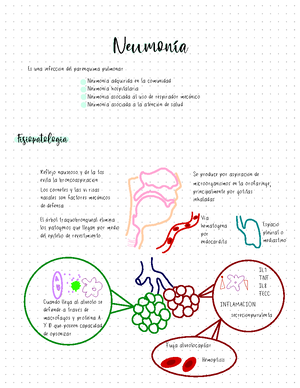 Neumonía
Es una infeccion del parenquima pulmonar
Neumonía adquirida en la comunidad
Neumonía hospitalaria
Neumonía asociada al uso de respirador mecánico
Neumonía asociada a la atención de salud
Fisiopatología
Reflejo nauseoso y de la tos
evita la broncoaspiracion
Los cornetes y las vi rizas
nasales son factores mecánicos
de defensa
El árbol traqueobronquial elimina
los patógenos que llegan por medio
del epitelio de revestimiento
Se produce por aspiración de
microorganismos en la orofaringe,
principalmente por gotitas
inhaladas
Vía
hematogena
por
endocarditis
Espacio
pleural o
mediastino
Cuando llega al alveolo se
defiende a traves de
macrofagos y proteína A
Y D que poseen capacidad
de opsonizar
IL1
TNF
IL8
FECG
INFLAMACIÓN
Fuga alveolocapilar
Hemoptisis